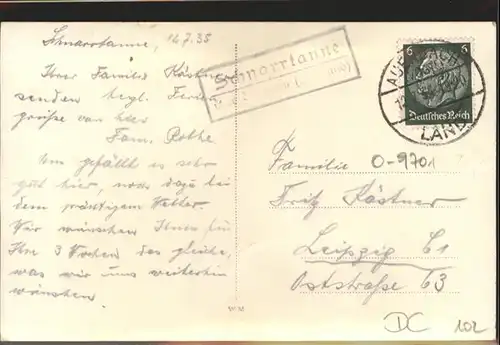 Schnarrtanne, 16.7.35
Ihrer Familie Kästner
senden herzl. Ferien
grüße von hier
Fam. Rothe.
Uns gefällt es sehr
gut hier, noch dazu bei
dem prächtigem Wetter.
Wir wünschen Ihnen für
Ihre 3 Wochen das gleiche,
was wir uns weiterhin
wünschen.
Schnarrtanne
6 6
Deutsches Reich
LAND
Familie
O-9701
Fritz Kästner
Leipzig C1
Oststraße 63
DC 102